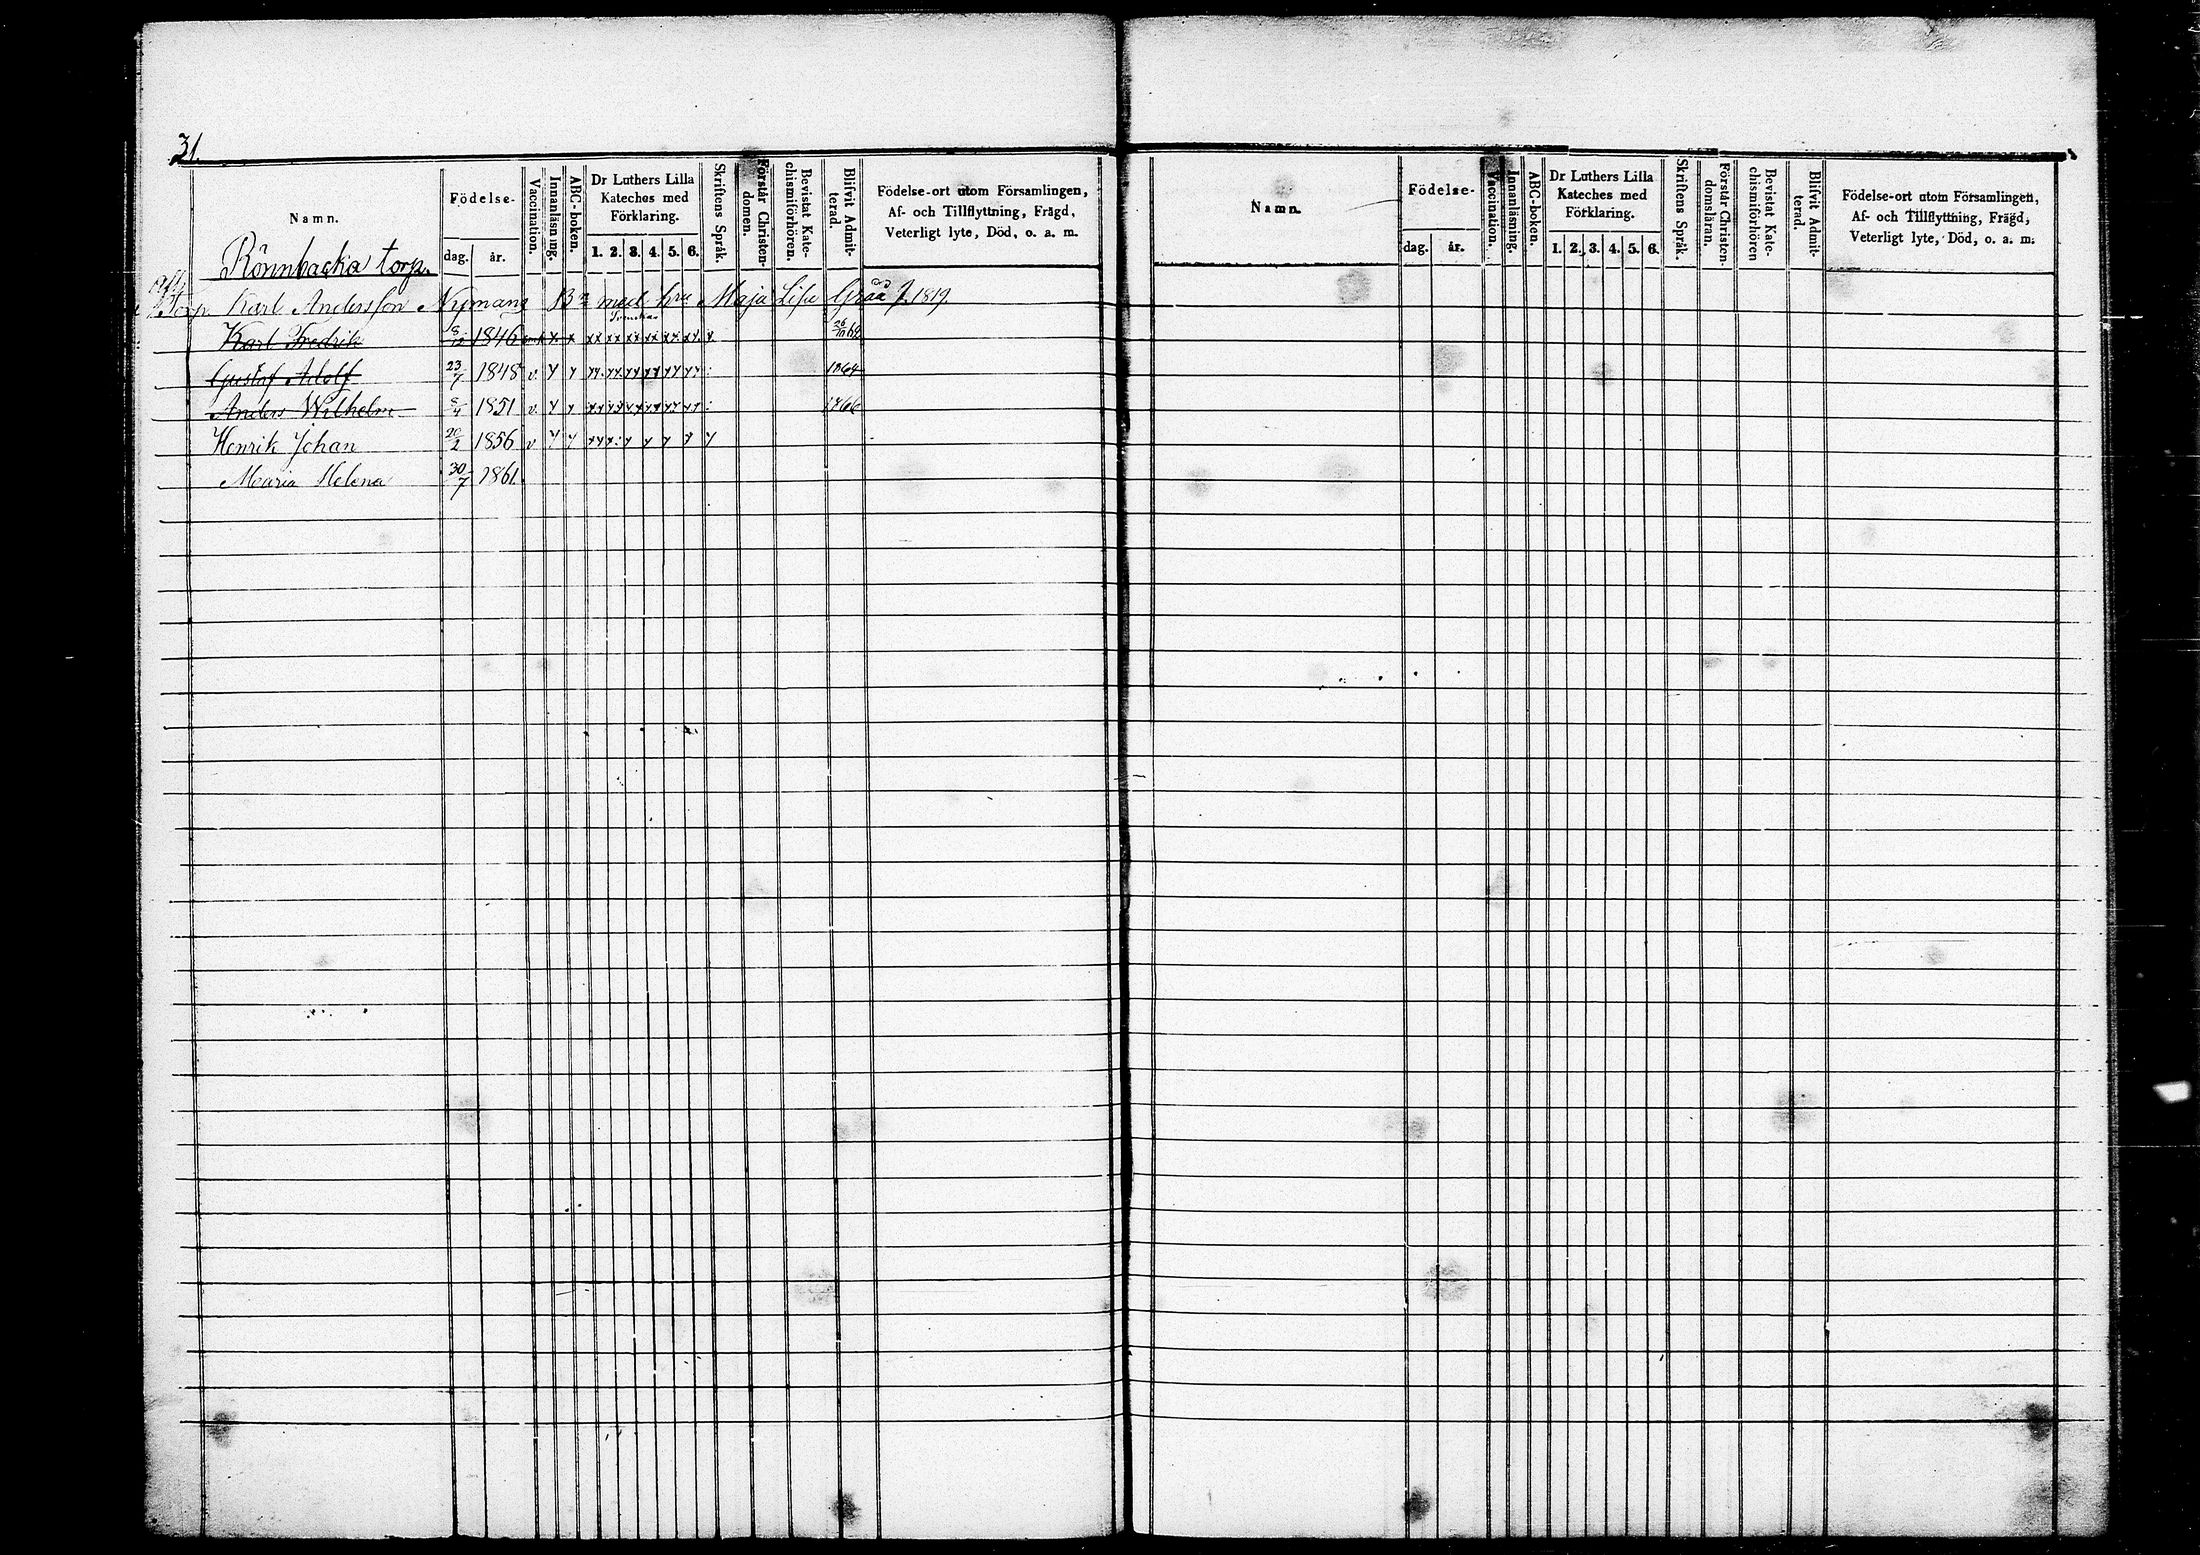 31.
Namn. Födelse- dag. år. Vaccination. Innanläsning. ABC-boken. Dr Luthers Lilla Kateches med Förklaring. 1. 2. 3. 4. 5. 6. Skriftens Språk. Förstår Christendomen. Bevistat Katechismiförhören. Blifvit Admitterad. Födelse-ort utom Församlingen, Af- och Tillflyttning, Frägd, Veterligt lyte, Död, o. a. m.
Rönnbacka torp.
Torp. Karl Andersson Nymans Bn med hu Maja Lisa 1819
Svenskar
Karl Fredrik 8/12 1846 x x xx xx xx xx xx xx x 26/10 62
Gustaf Adolf 23/7 1848 v. x x xx xx xx xx xx xx 1864
Anders Wilhelm 8/4 1851 v. x x xx xx xx xx xx xx 1866
Henrik Johan 20/2 1856 v x x xx x x x x x x
Maria Helena 30/7 1861.
Namn. Födelse- dag. år. Vaccination. Innanläsning. ABC-boken. Dr Luthers Lilla Kateches med Förklaring. 1. 2. 3. 4. 5. 6. Skriftens Språk. Förstår Christendomsläran. Bevistat Katechismiförhören Blifvit Admitterad. Födelse-ort utom Församlingen, Af- och Tillflyttning, Frägd, Veterligt lyte, Död, o. a. m.